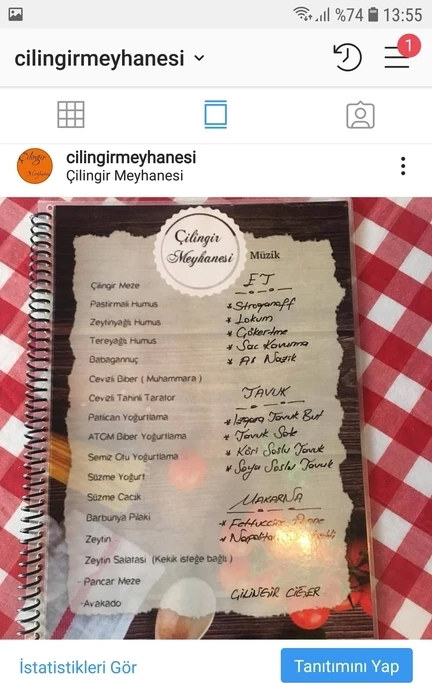 %74 13:55
cilingirmeyhanesi
1
cilingirmeyhanesi
Çilingir Meyhanesi
Çilingir
Meyhanesi
Müzik
Çilingir Meze
Pastırmalı Humus
Zeytinyağlı Humus
Tereyağlı Humus
Babagannuç
Cevizli Biber ( Muhammara )
Cevizli Tahinli Tarator
Patlıcan Yoğurtlama
ATOM Biber Yoğurtlama
Semiz Otu Yoğurtlama
Süzme Yoğurt
Süzme Cacık
Barbunya Pilaki
Zeytin
Zeytin Salatası (Kekik isteğe bağlı)
- Pancar Meze
-Avakado
ET
* Stroganoff
* Lokum
* Çökertme
* Sac Kavurma
* Ali Nazik
TAVUK
* Izgara Tavuk But
* Tavuk Sote
* Köri Soslu Tavuk
* Soya Soslu Tavuk
MAKARNA
* Fettuccine
* Napoliten
ÇİLİNGİR CİĞER
İstatistikleri Gör
Tanıtımını Yap